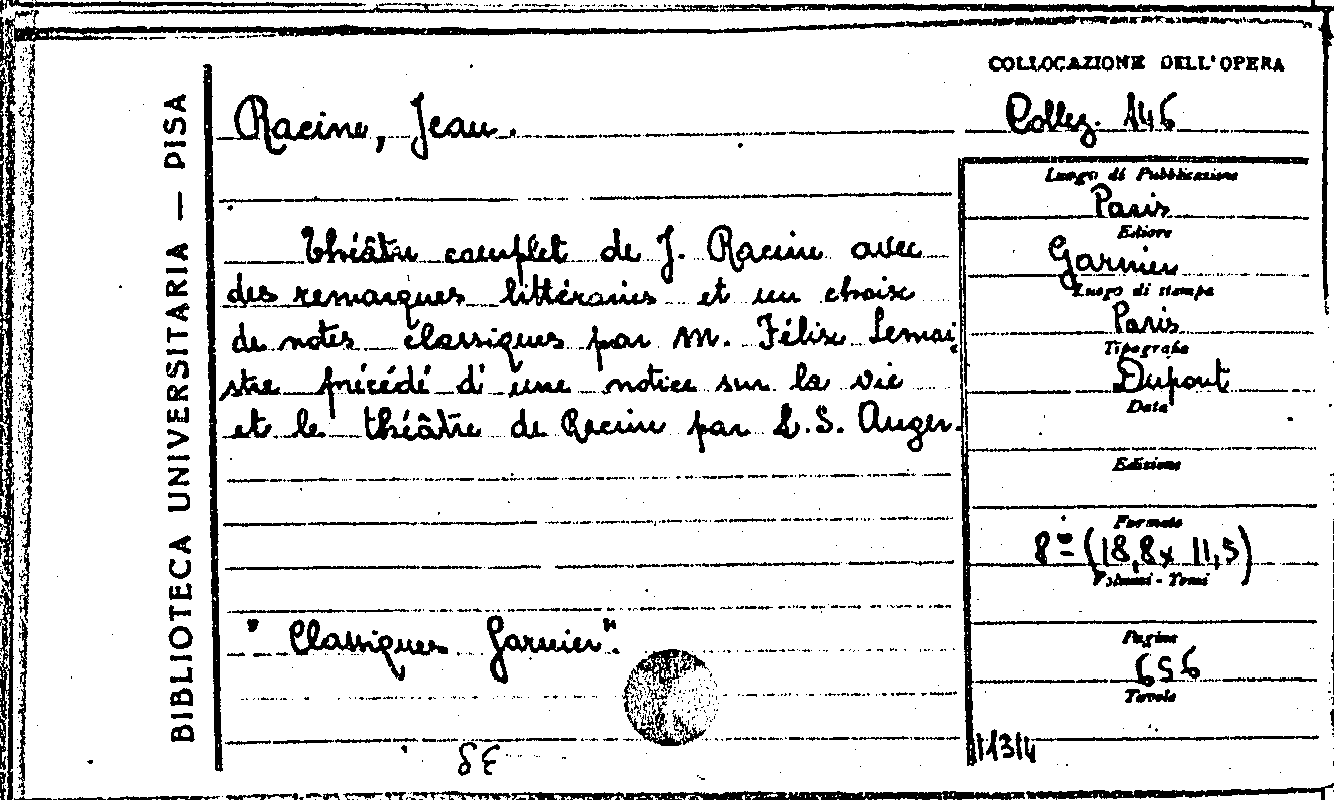 BIBLIOTECA UNIVERSITARIA — PISA
COLLOCAZIONE DELL'OPERA
Racine, Jean.
Collez. 146
Théâtre complet de J. Racine avec
des remarques littéraires et un choix
de notes classiques par M. Félix Lemai
stre précédé d'une notice sur la vie
et le théâtre de Racine par L.S. Auger.
"Classiques Garnier".
Luogo di Pubblicazione
Paris
Editore
Garnier
Luogo di stampa
Paris
Tipografia
Dupont
Data
Edizione
Formato
8° (18,8x 11,5)
Volumi - Tomi
Pagine
656
Tavole